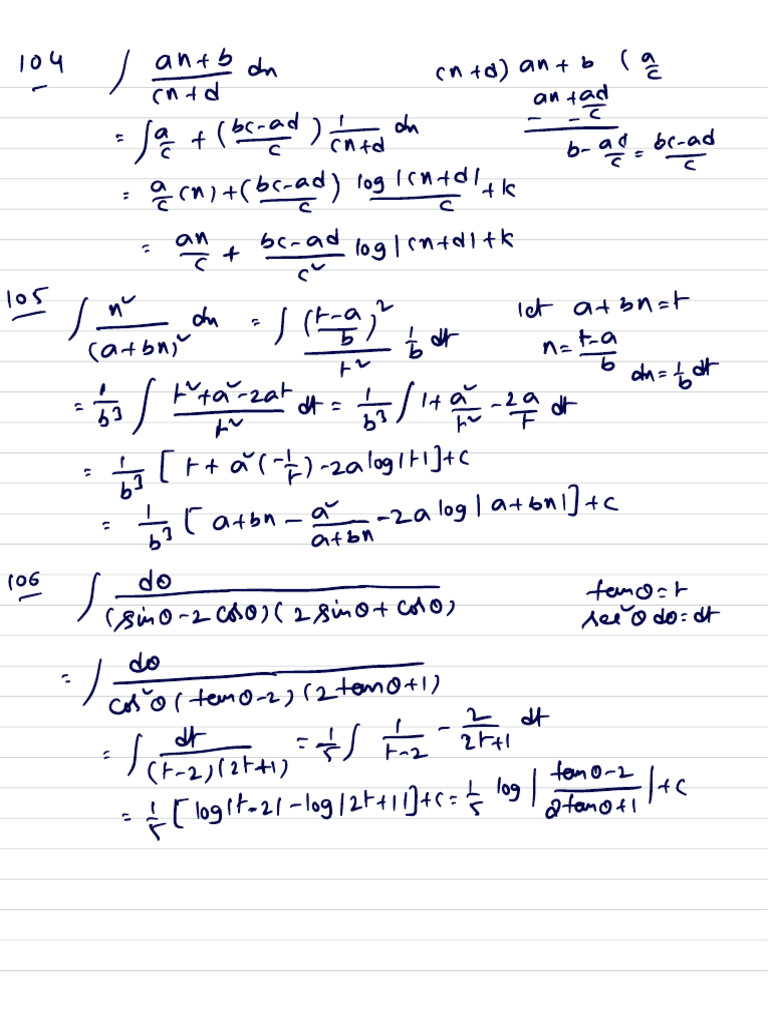 104 ∫ (an+b)/(cn+d) dn    cn+d) an+b (a/c
an + ad/c
- -
b - ad/c = (bc-ad)/c
= ∫ a/c + ((bc-ad)/c) 1/(cn+d) dn
= a/c (n) + ((bc-ad)/c) log|cn+d|/c + k
= an/c + (bc-ad)/c² log|cn+d| + k
105 ∫ n²/(a+bn)² dn = ∫ ((t-a)/b)²/t² 1/b dt    let a+bn=t
n = (t-a)/b
dn = 1/b dt
= 1/b³ ∫ (t²+a²-2at)/t² dt = 1/b³ ∫ 1 + a²/t² - 2a/t dt
= 1/b³ [t + a²(-1/t) - 2a log|t|] + c
= 1/b³ [a+bn - a²/(a+bn) - 2a log|a+bn|] + c
106 ∫ dθ/((sinθ-2cosθ)(2sinθ+cosθ))    tanθ=t
sec²θ dθ=dt
= ∫ dθ/(cos²θ(tanθ-2)(2tanθ+1))
= ∫ dt/((t-2)(2t+1)) = 1/5 ∫ 1/(t-2) - 2/(2t+1) dt
= 1/5 [log|t-2| - log|2t+1|] + c = 1/5 log|(tanθ-2)/(2tanθ+1)| + c